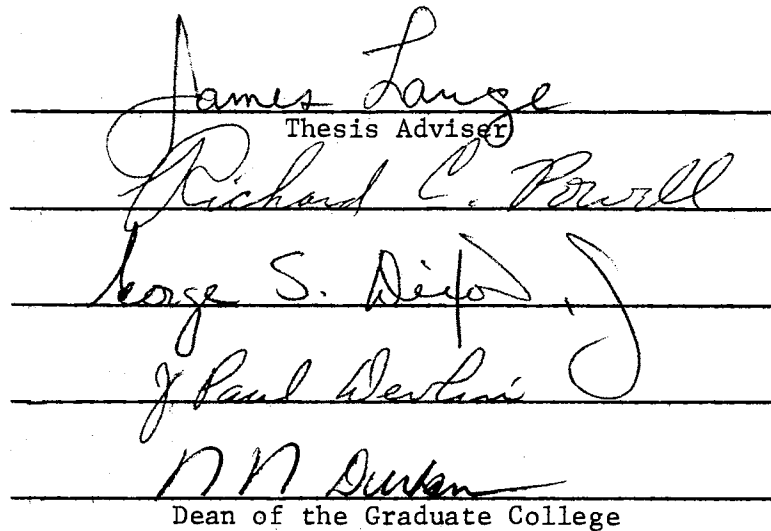 James Lange
Thesis Adviser
Richard C. Powell
George S. Dixon, J
J. Paul Devlin
N N Durham
Dean of the Graduate College